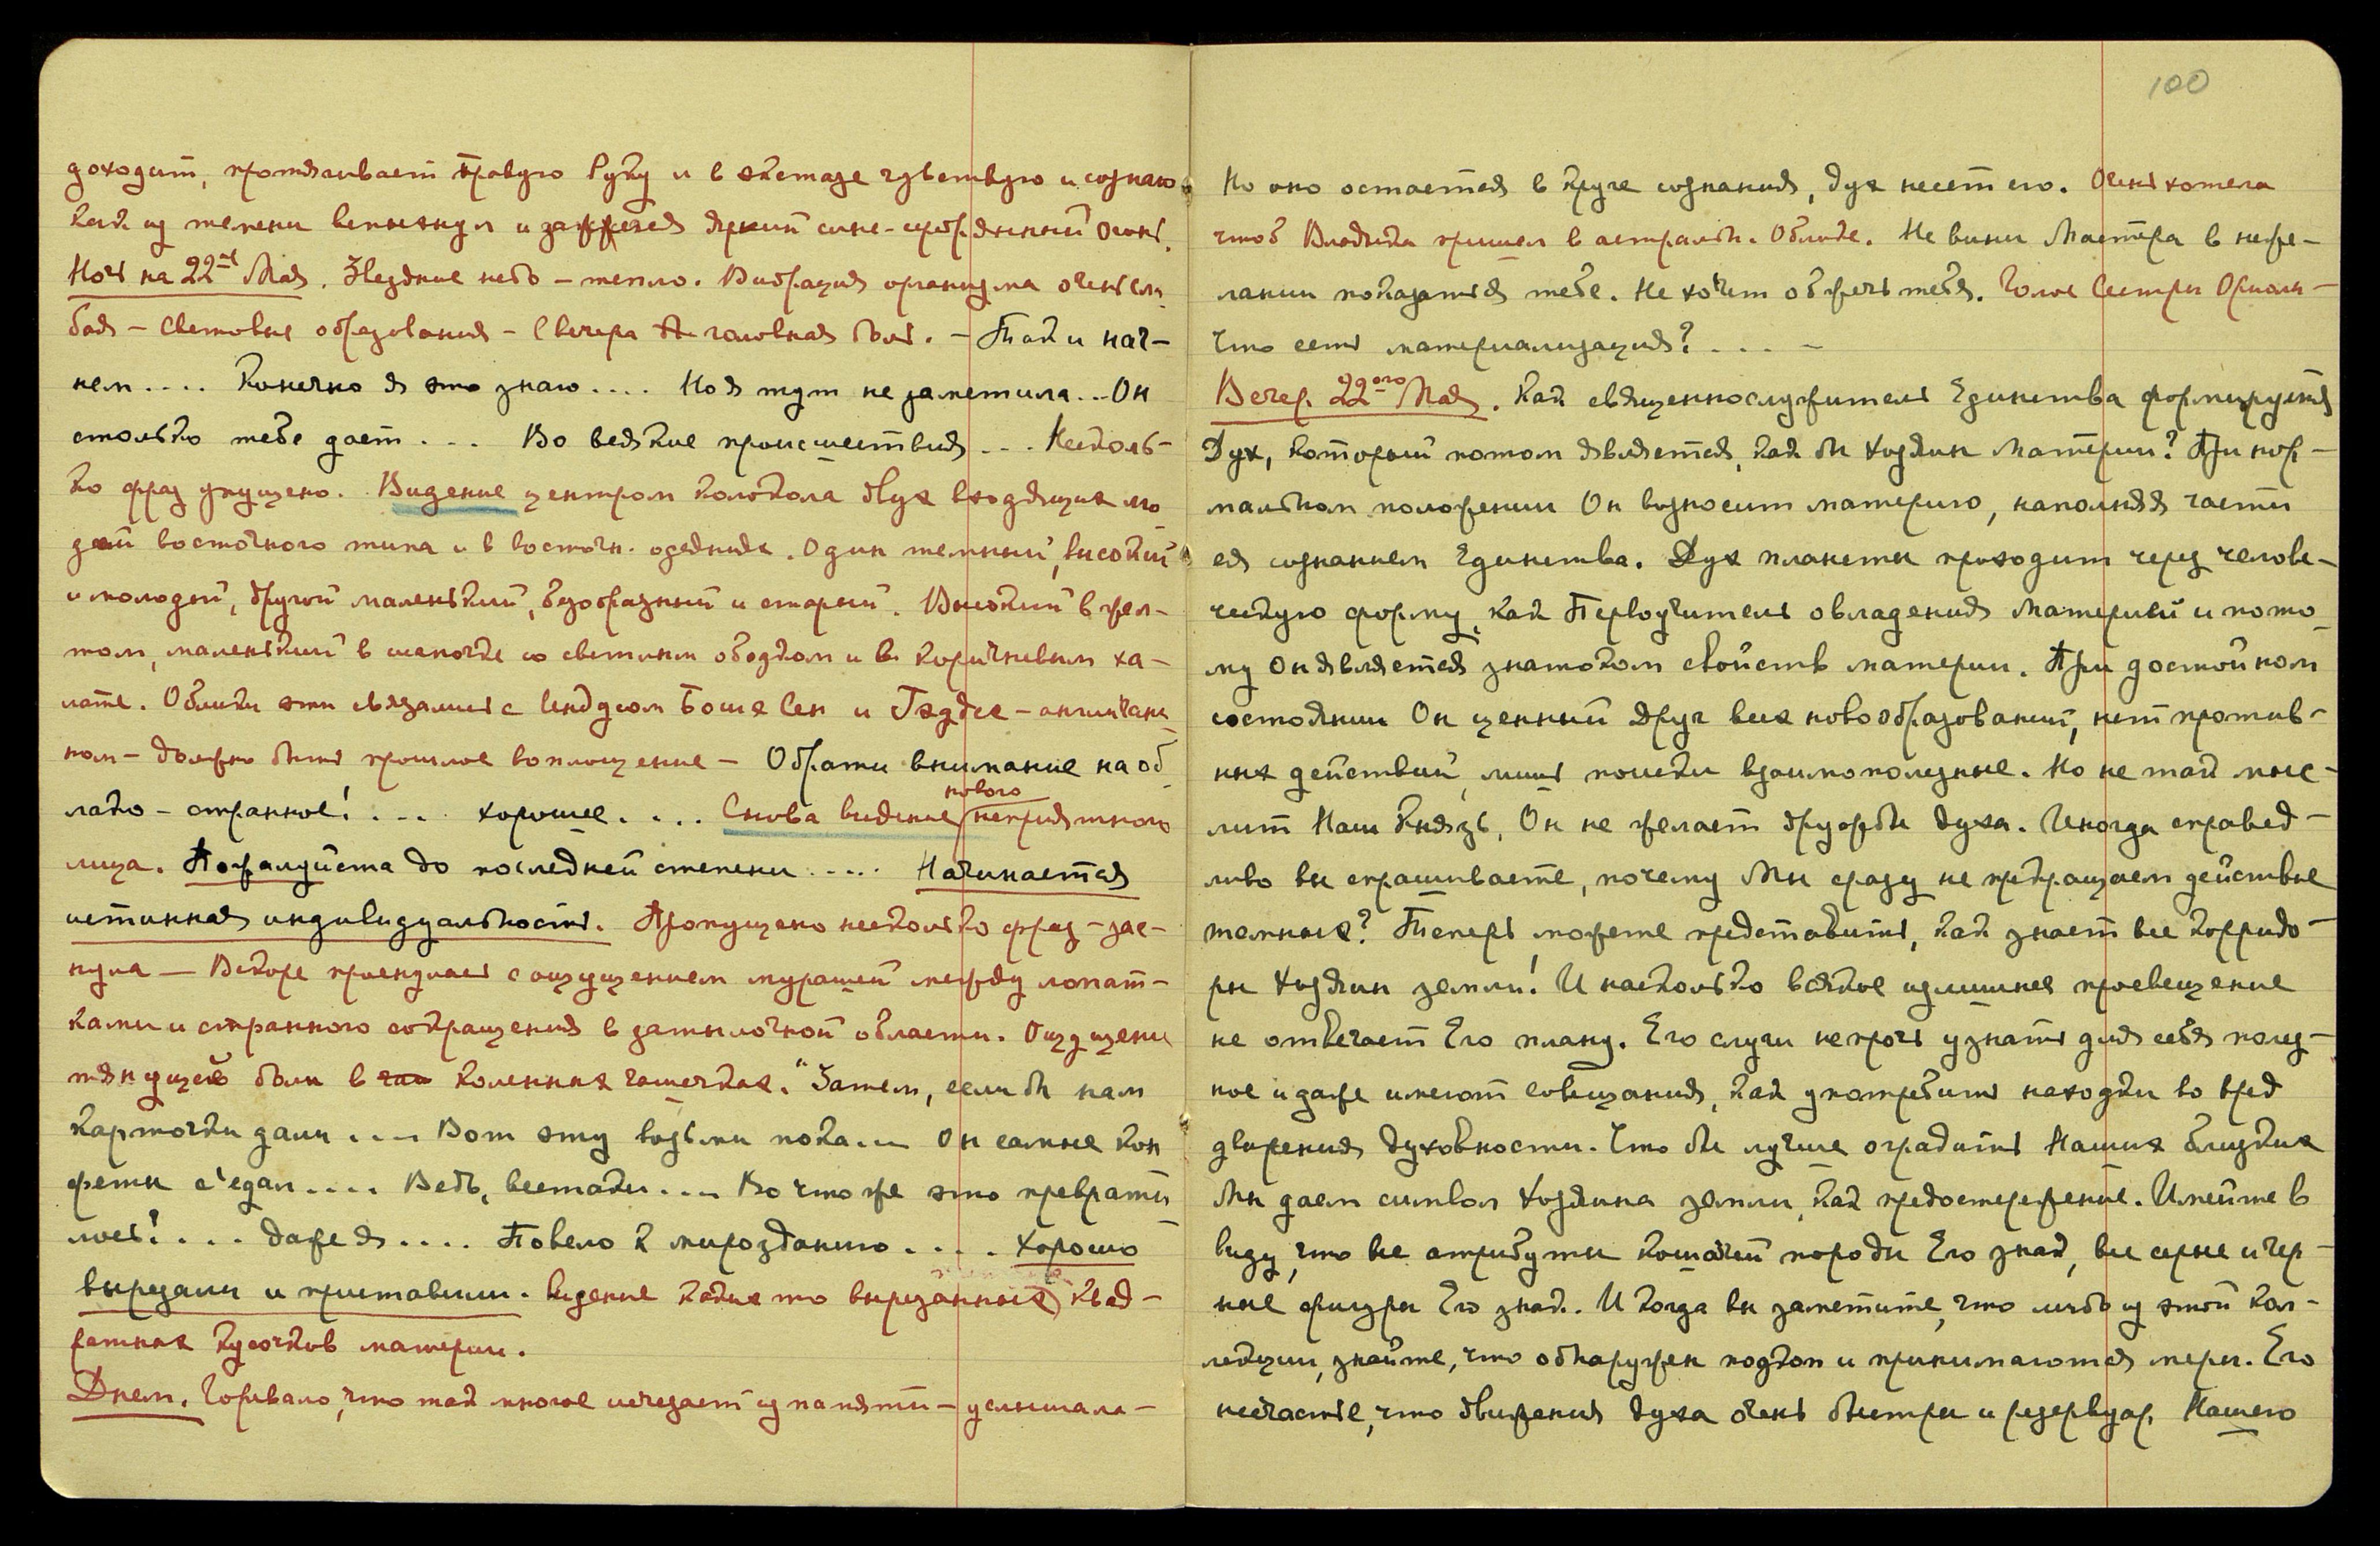 доходит, протягивает правую Руку и в экстазе чувствую и сознаю
как из темени вспыхнул и зажжегся яркий сине-серебрянный Огонь.
Ночь на 22ое Мая. Звездное небо – тепло. Вибрация организма очень сла-
бая – Световые образования – С вечера головная боль. – Так и нач-
нем .... Конечно я это знаю .... Но я тут не заметила... Он
столько тебе дает ... Во всякие происшествия ... Несколь-
ко фраз упущено. Видение центром колокола двух входящих лю-
дей восточного типа и в восточн. одеяниях. Один темный, высокий
и молодой, другой маленький, безобразный и старый. Высокий в жел-
том, маленький в шапочке со светлым ободком и в коричневом ха-
лате. Облики эти связались с Индусом Боше Сен и Гэддсе – англичани-
ном – должно быть прошлое воплощение – Обрати внимание на об-
лако – странное! ... хорошее. ... Снова видение нового неприятного
лица. Пожалуйста до последней степени ..... Начинается
истинная индивидуальность. Пропущено несколько фраз – зас-
нула – Вскоре проснулась с ощущением мурашей между лопат-
ками и странного сокращения в затылочной области. Ощущение
тянущей боли в коленных чашечках. " Затем, если бы нам
карточки дали .... Вот эту возьми пока ... Он самые кон
феты с'едал .... Ведь, всетаки .... Во что же это преврати-
лось? ... даже я .... Повело к мирозданию .... хорошо
вырезали и приставили. Видение каких то вырезанных квад-
ратных кусочков материи.
Днем. Горевало, что так многое исчезает из памяти – услышала –
100
Но оно остается в круге сознания, дух несет его. Очень хотела
чтоб Владыка пришел в астральн. Облике. Не вини Мастера в неже-
лании показаться тебе. Не хочет обжечь тебя. Голос Сестры Ориолы –
Что есть материализация? .... –
Вечер. 22ого Мая. Как священнослужитель Единства формируется
Дух, который потом является, как бы хозяин Материи? При нор-
мальном положении Он возносит материю, наполняя части
ея сознанием Единства. Дух планеты проходит через челове-
ческую форму, как Первоучитель овладения Материей и пото-
му Он является знатоком свойств материи. При достойном
состоянии Он ценный Друг всех новообразований, нет против-
ных действий, лишь поиски взаимополезные. Но не так мыс-
лит Наш Князь, Он не желает дружбы духа. Иногда справед-
ливо вы спрашиваете, почему Мы сразу не прекращаем действие
темных? Теперь можете представить, как знает все корридо-
ры хозяин земли! И насколько всякое излишнее просвещение
не отвечает Его плану. Его слуги не прочь узнать для себя полез-
ное и даже имеют совещания, как употребить находки во вред
дворения духовности. Что бы лучше оградить Наших близких
Мы даем символ хозяина земли, как предостережение. Имейте в
виду, что все атрибуты кошачей породы Его знак, все серые и чер-
ные фигуры Его знак. И когда вы заметите, что либо из этой кол-
лекции, знайте, что обнаружен подкоп и принимаются меры. Его
несчастье, что движения духа очень быстры и резервуар Нашего